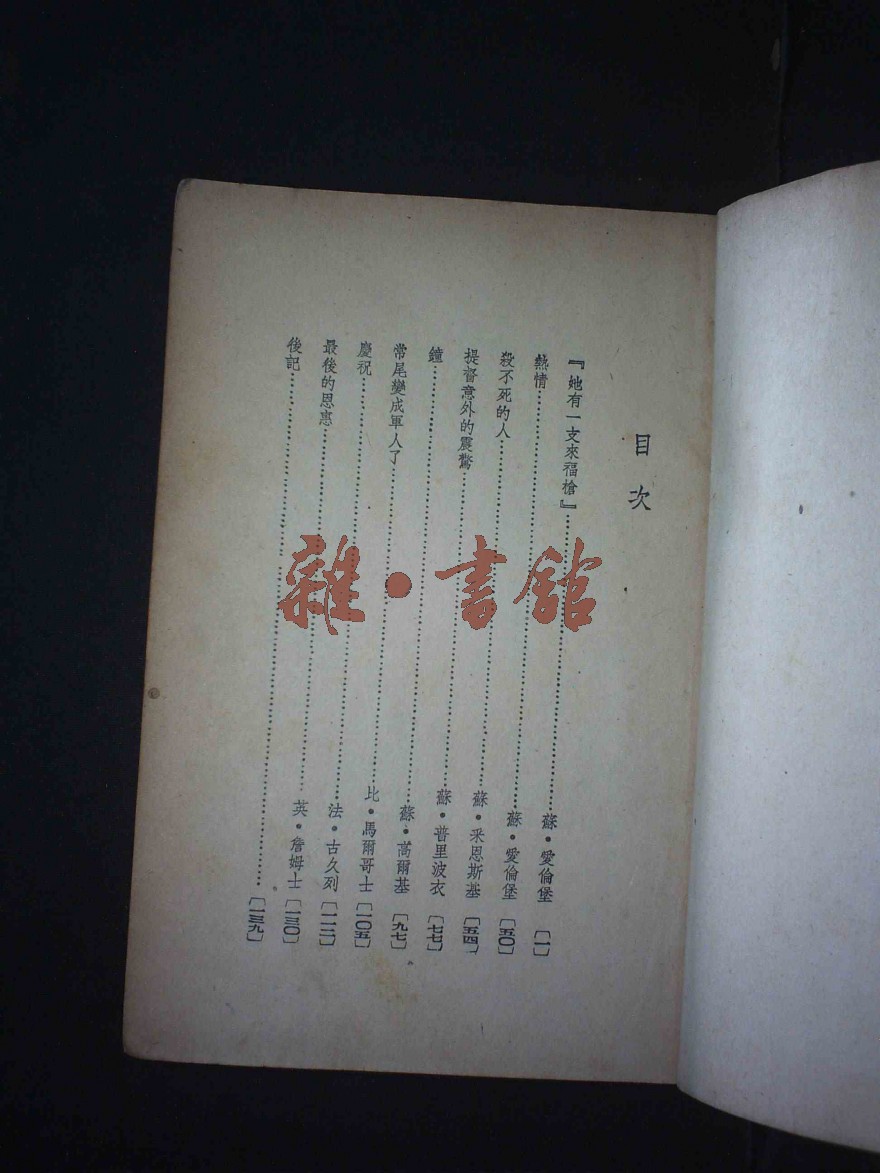 目次
『她有一支來福槍』……蘇・愛倫堡〔一〕
熱情……蘇・愛倫堡〔五〇〕
殺不死的人……蘇・釆恩斯基〔五四〕
提督意外的震驚……蘇・普里波衣〔七七〕
鐘……蘇・高爾基〔九七〕
常尾變成軍人了……比・馬爾哥士〔一〇五〕
慶祝……法・古久列〔一一二〕
最後的恩惠……英・詹姆士〔一三〇〕
後記……〔一三九〕
雜・書館